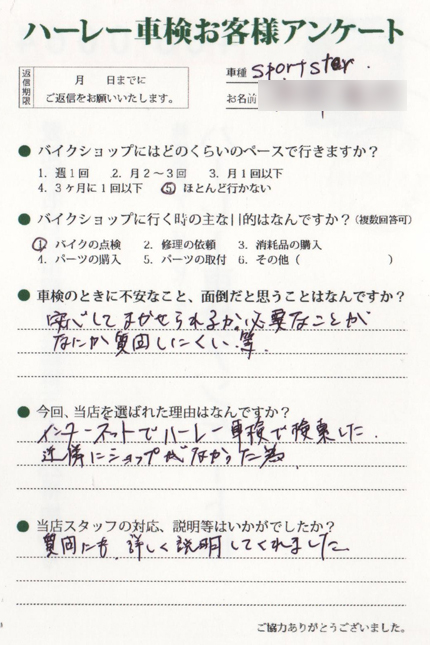 ハーレー車検お客様アンケート
返信期限 月 日までに
ご返信をお願いいたします。
車種 sportster.
お名前
● バイクショップにはどのくらいのペースで行きますか？
1. 週1回 2. 月2～3回 3. 月1回以下
4. 3ヶ月に1回以下 ⑤ ほとんど行かない
● バイクショップに行く時の主な目的はなんですか？(複数回答可)
① バイクの点検 2. 修理の依頼 3. 消耗品の購入
4. パーツの購入 5. パーツの取付 6. その他（ ）
● 車検のときに不安なこと、面倒だと思うことはなんですか？
安心してまかせられるか。必要なことが
なにか質問しにくい.等.
● 今回、当店を選ばれた理由はなんですか？
インターネットでハーレー車検で検索した.
近隣にショップがなかった為
● 当店スタッフの対応、説明等はいかがでしたか？
質問にも、詳しく説明してくれました
ご協力ありがとうございました。